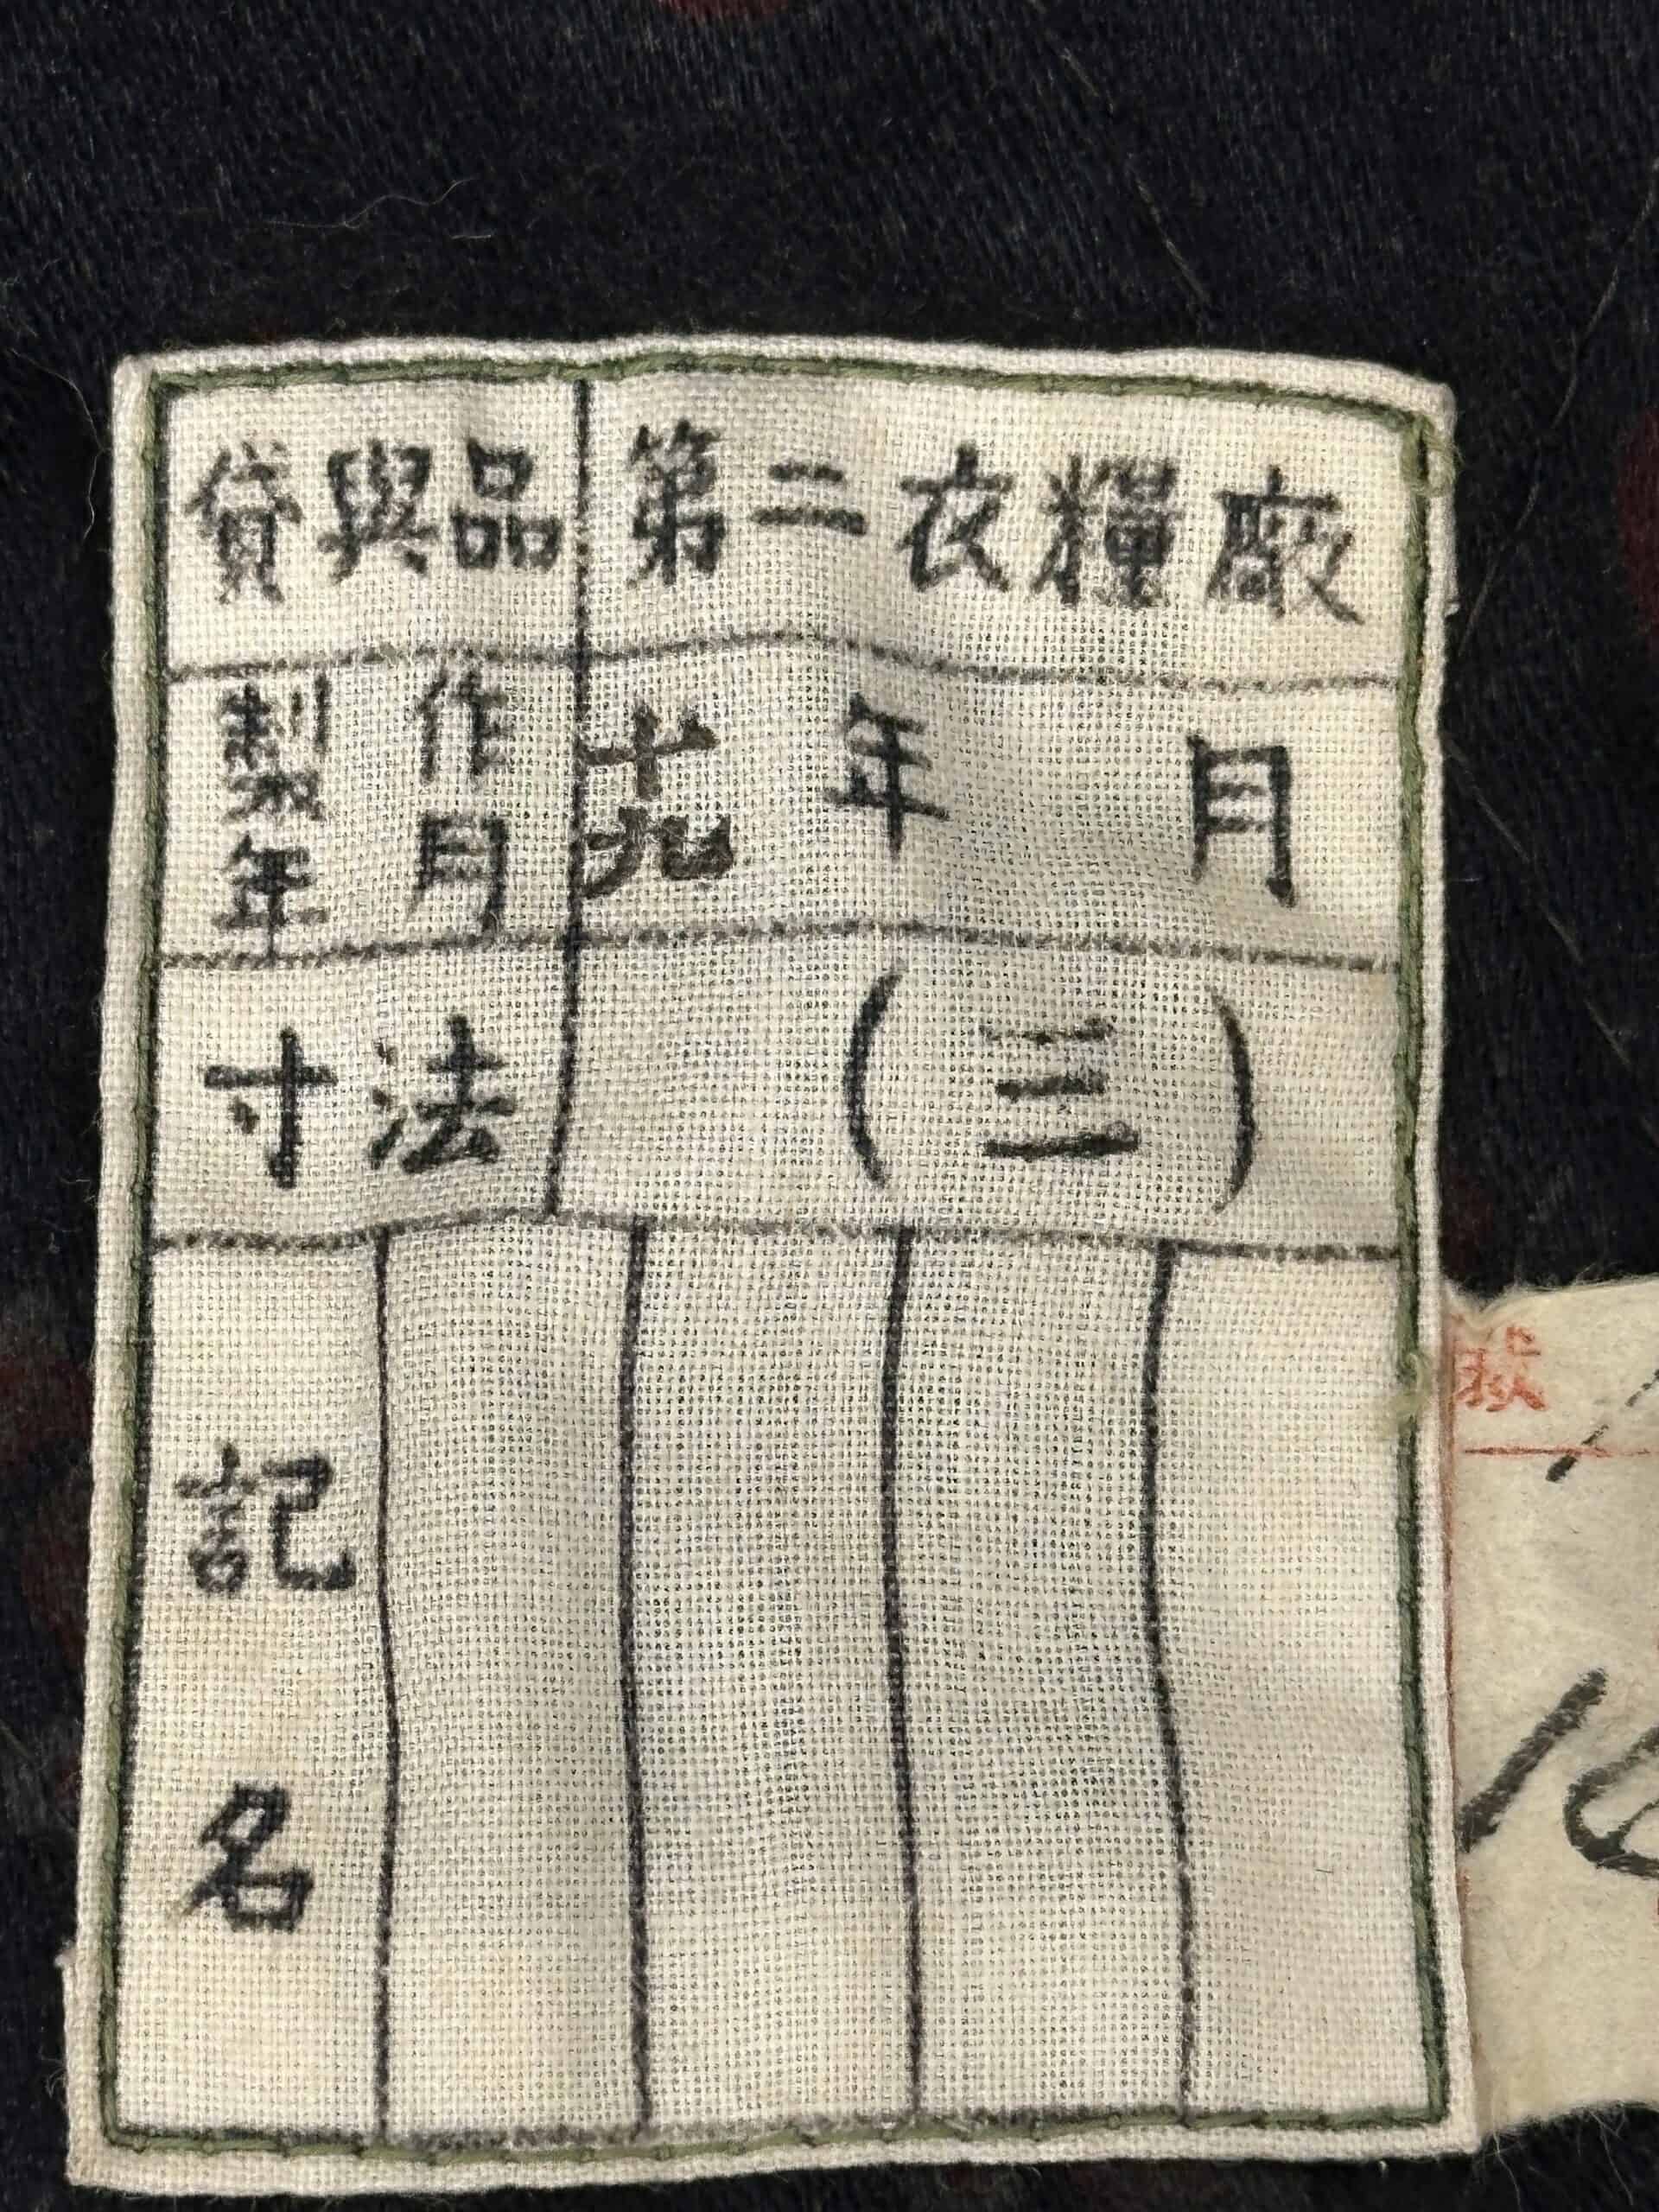 貸與品 第二衣糧廠
製作年月 十九年 月
寸法 (三)
記名
號